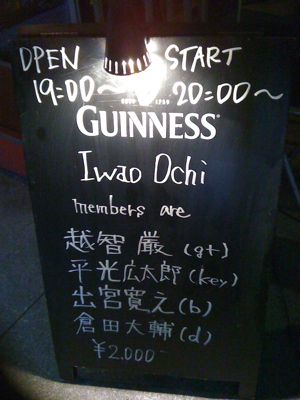 OPEN START
19:00~ 20:00~
GUINNESS
Iwao Ochi
members are
越智 巌 (gt)
平光広太郎 (key)
出宮寛之 (b)
倉田大輔 (d)
¥2.000